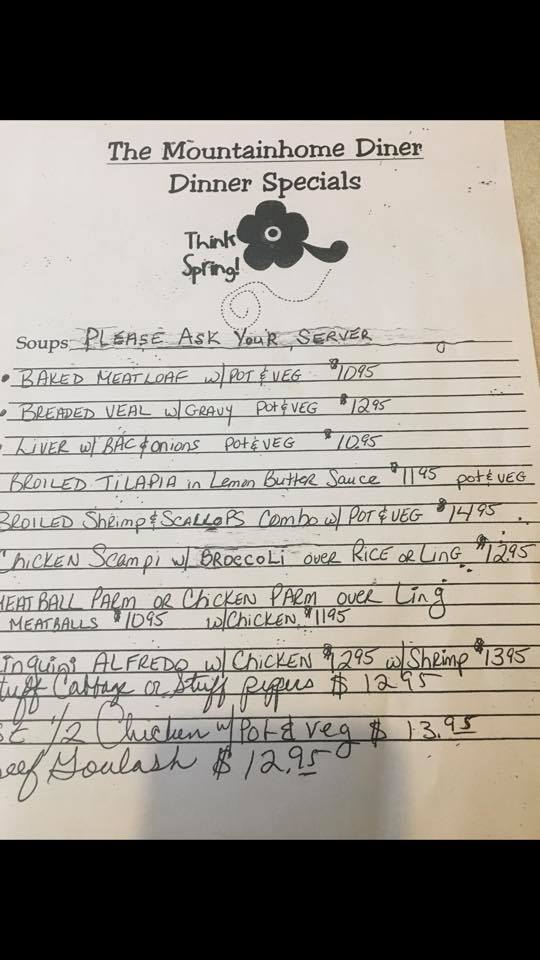 The Mountainhome Diner
Dinner Specials
Think
Spring!
Soups PLEASE ASK YOUR SERVER
• BAKED MEATLOAF w/POT & VEG $10.95
• BREADED VEAL w/GRAVY POT & VEG $12.95
• LIVER w/ BAC & onions POT & VEG $10.95
BROILED TILAPIA in Lemon Butter Sauce $11.95 pot & VEG
BROILED Shrimp & SCALLOPS Combo w/ POT & VEG $14.95
CHICKEN Scampi w/ BROCCOLI over RICE or LING $12.95
MEATBALL PARM or Chicken PARM over Ling
MEATBALLS $10.95 w/Chicken $11.95
inguini ALFREDO w/ Chicken $12.95 w/Shrimp $13.95
tuff Cabbage or Stuff peppers $12.95
1/2 Chicken w/ Pot & veg $13.95
eef Goulash $12.95